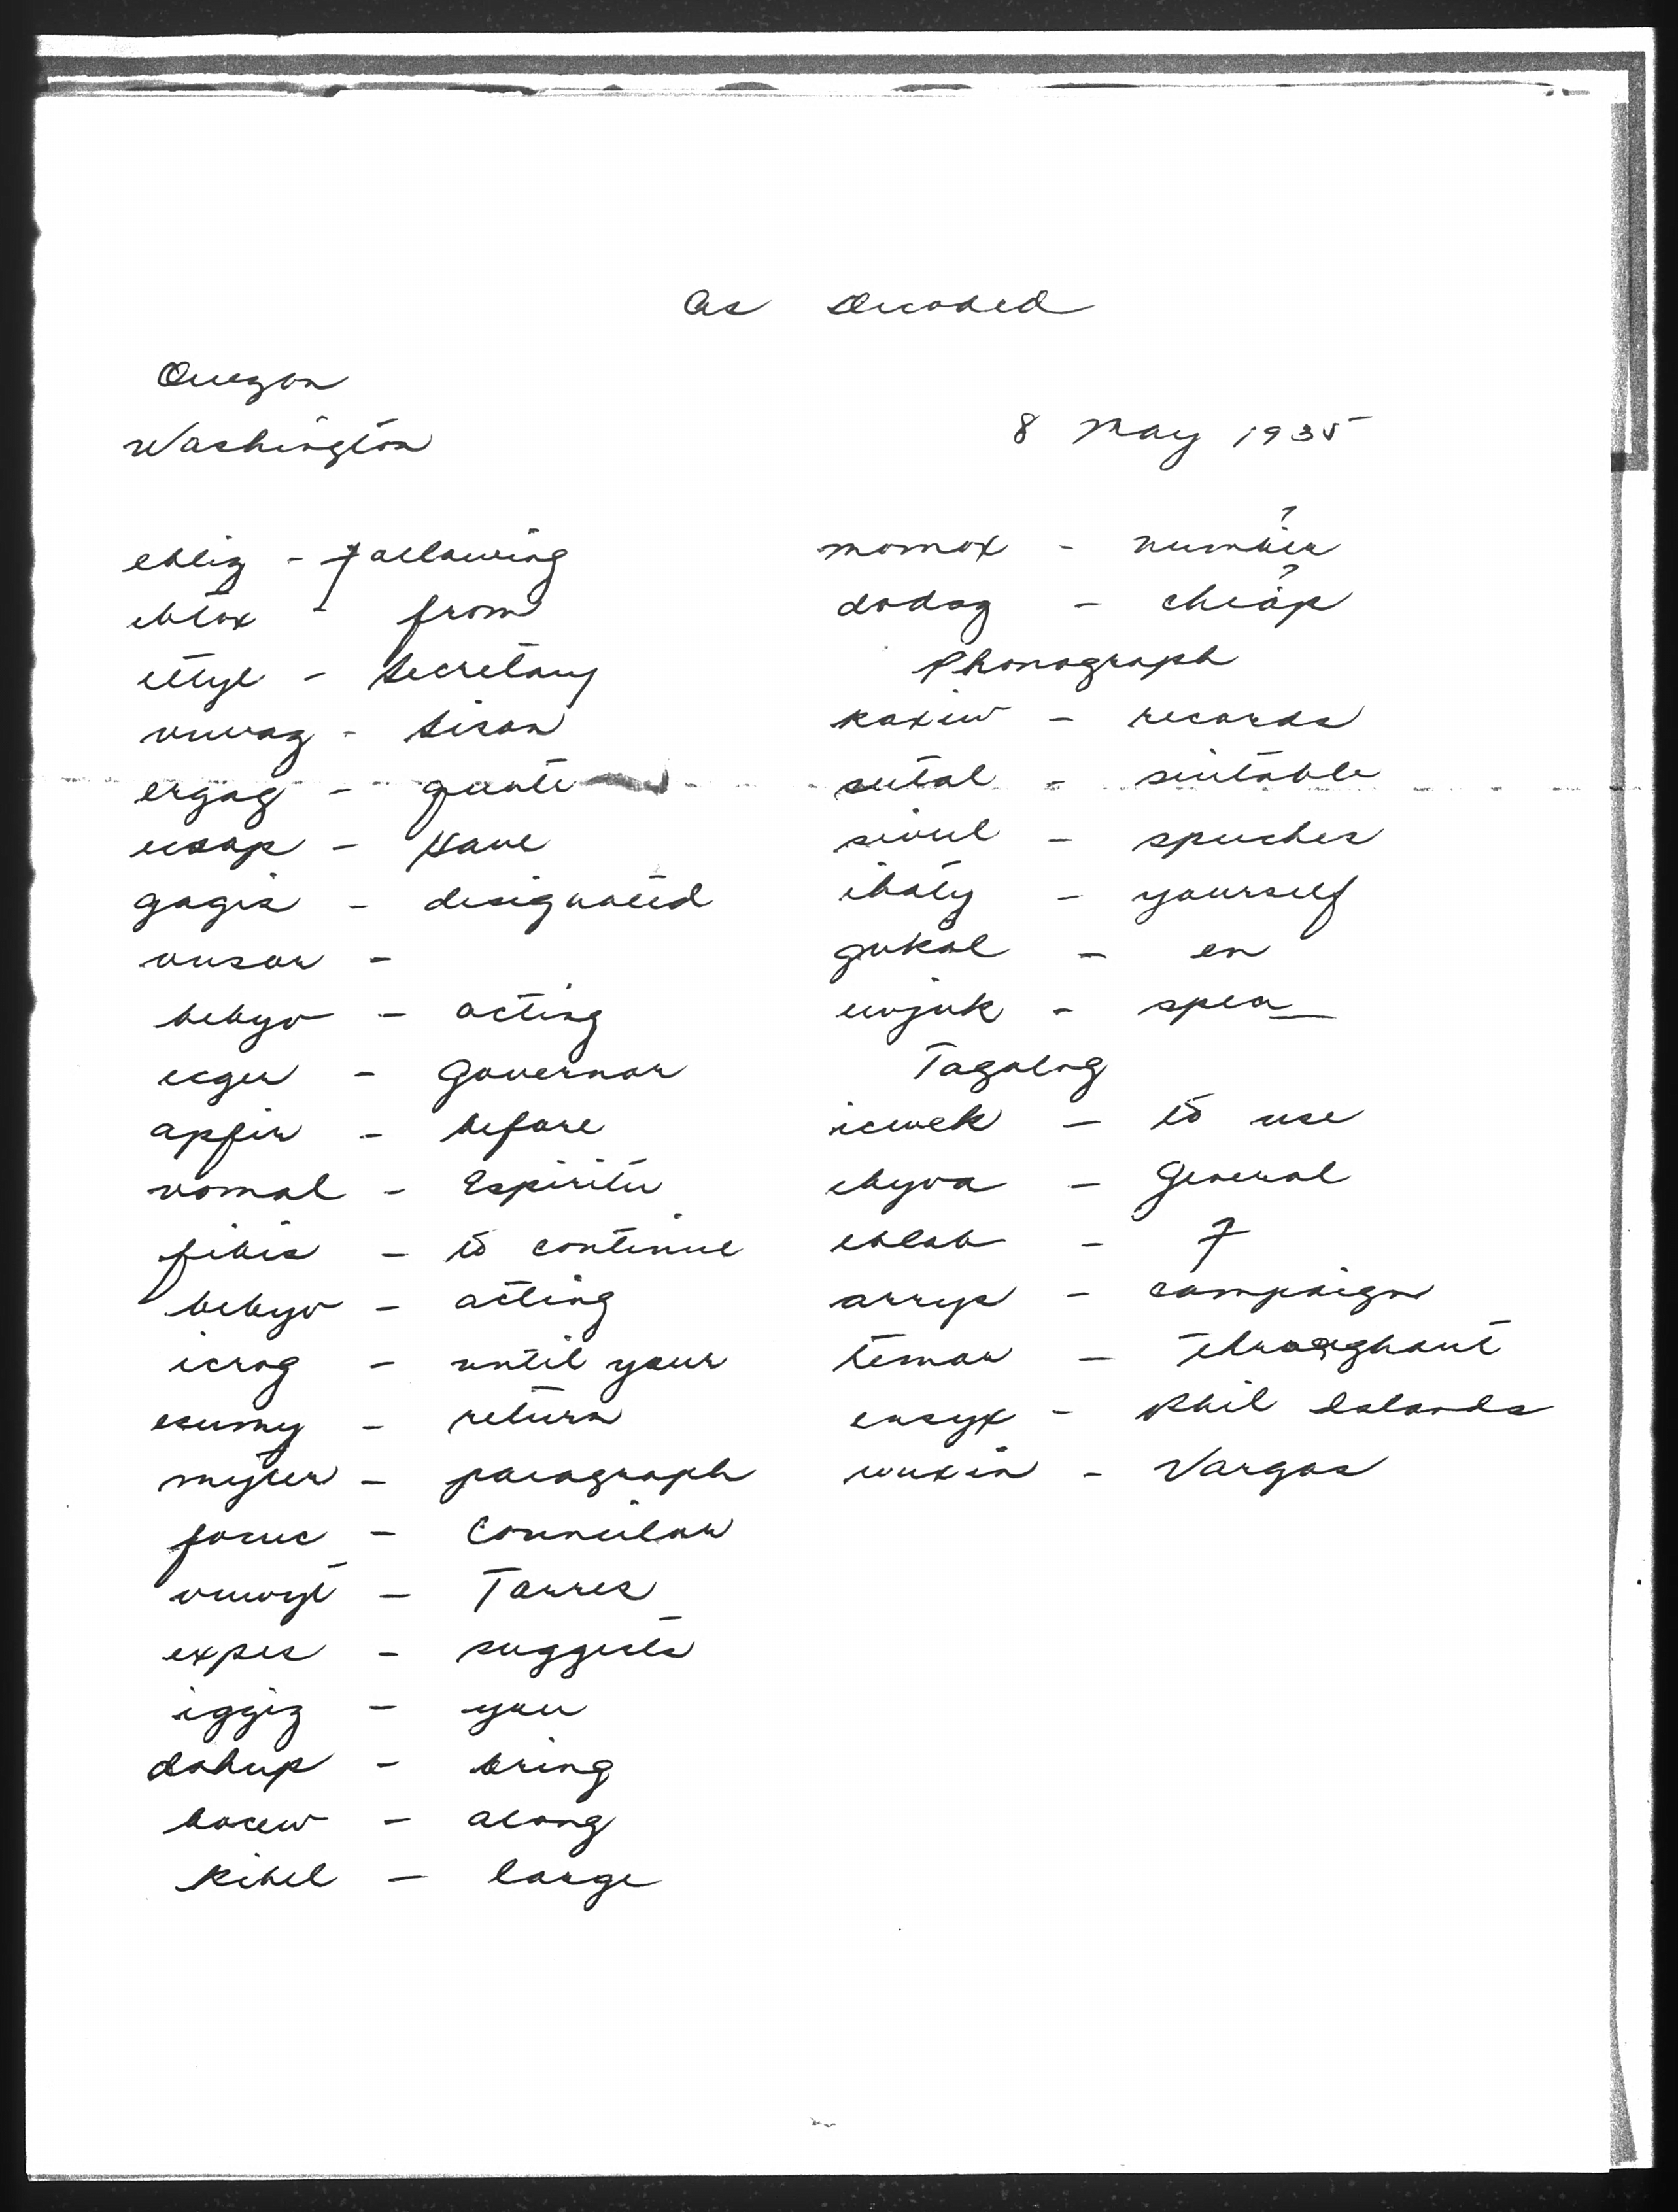 As Decoded
Quezon
Washington
8 May 1935
ebliz - following
eblox - from
ettyl - Secretary
vuvag - Sison
ergag - quote
ecsap - Have
gagis - designated
vusow -
bebyv - acting
ecger - Governor
apfir - before
vomal - Espiritu
fibis - to continue
bebyv - acting
icrog - until your
esumy - return
myter - paragraph
focuc - Councilor
vuwyt - Torres
expes - suggests
iggiz - you
dohup - bring
bocew - along
kibel - large
momox - number ?
dodog - cheap ?
Phonograph
kaxiw - records
sutal - suitable
sivul - speeches
ibaty - yourself
gukal - en
ewjuk - spea__
Tagalog
icwek - to use
ebyva - General
eblab - 7
arryp - campaign
temow - throughout
ensyx - Phil Islands
wuxin - Vargas